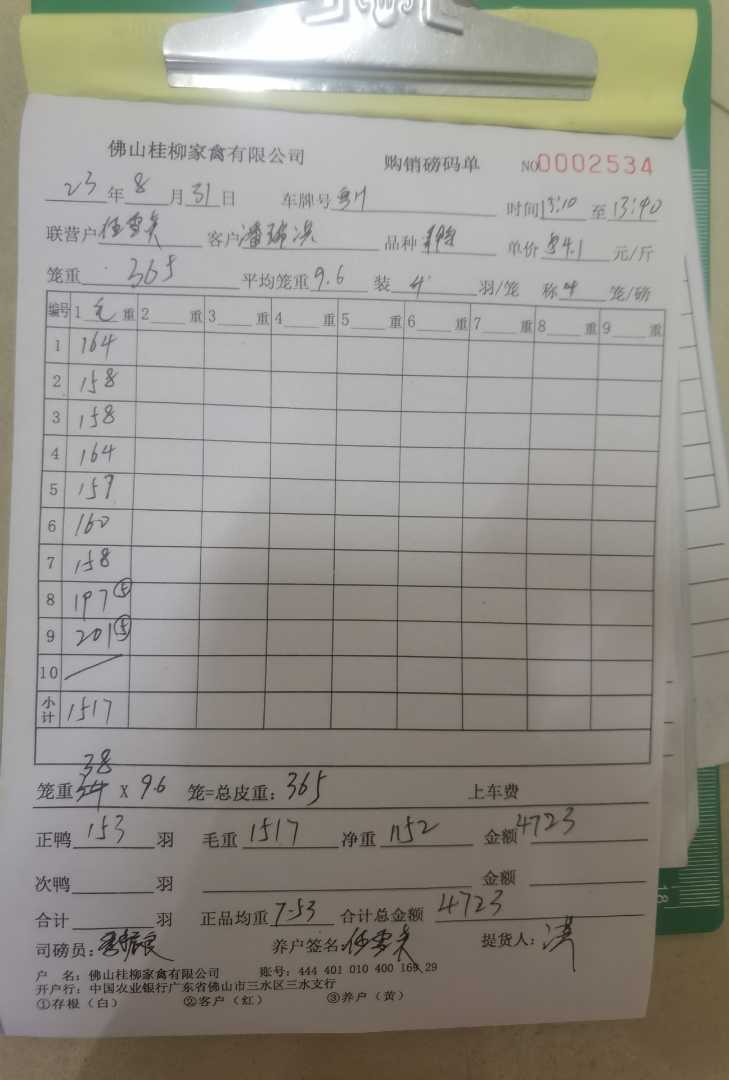 佛山桂柳家禽有限公司 购销磅码单 NO0002534
23年8月31日 车牌号 时间13:10至13:40
联营户 客户潘 品种 单价4.1元/斤
笼重365 平均笼重9.6 装4羽/笼 称4笼/磅
编号 1毛重 2重 3重 4重 5重 6重 7重 8重 9重
1 164
2 158
3 158
4 164
5 159
6 160
7 158
8 197⑤
9 201⑤
10
小计 1517
38
笼重 x 9.6 笼=总皮重：365 上车费
正鸭153羽 毛重1517 净重1152 金额4723
次鸭羽 金额
合计羽 正品均重7.53 合计总金额4723
司磅员： 养户签名： 提货人：
户 名：佛山桂柳家禽有限公司 账号：444 401 010 400 169 29
开户行：中国农业银行广东省佛山市三水区三水支行
①存根（白） ②客户（红） ③养户（黄）
18